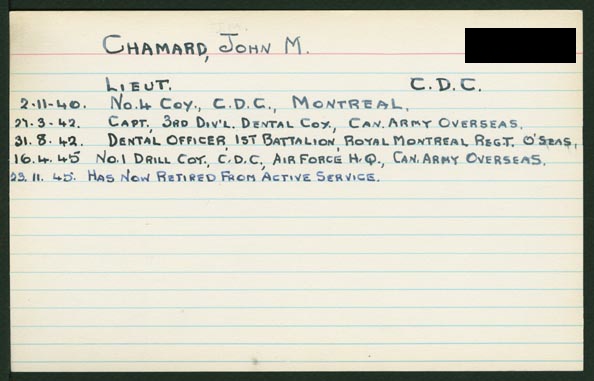 CHAMARD, JOHN M.
LIEUT. C.D.C.
2.11.40. NO.4 COY., C.D.C., MONTREAL.
27.3.42. CAPT., 3RD DIV'L. DENTAL COY., CAN. ARMY OVERSEAS.
31.8.42. DENTAL OFFICER, 1ST BATTALION, ROYAL MONTREAL REGT. O'SEAS.
16.4.45 NO.1 DRILL COY., C.D.C., AIR FORCE H.Q., CAN. ARMY OVERSEAS.
23.11.45. HAS NOW RETIRED FROM ACTIVE SERVICE.